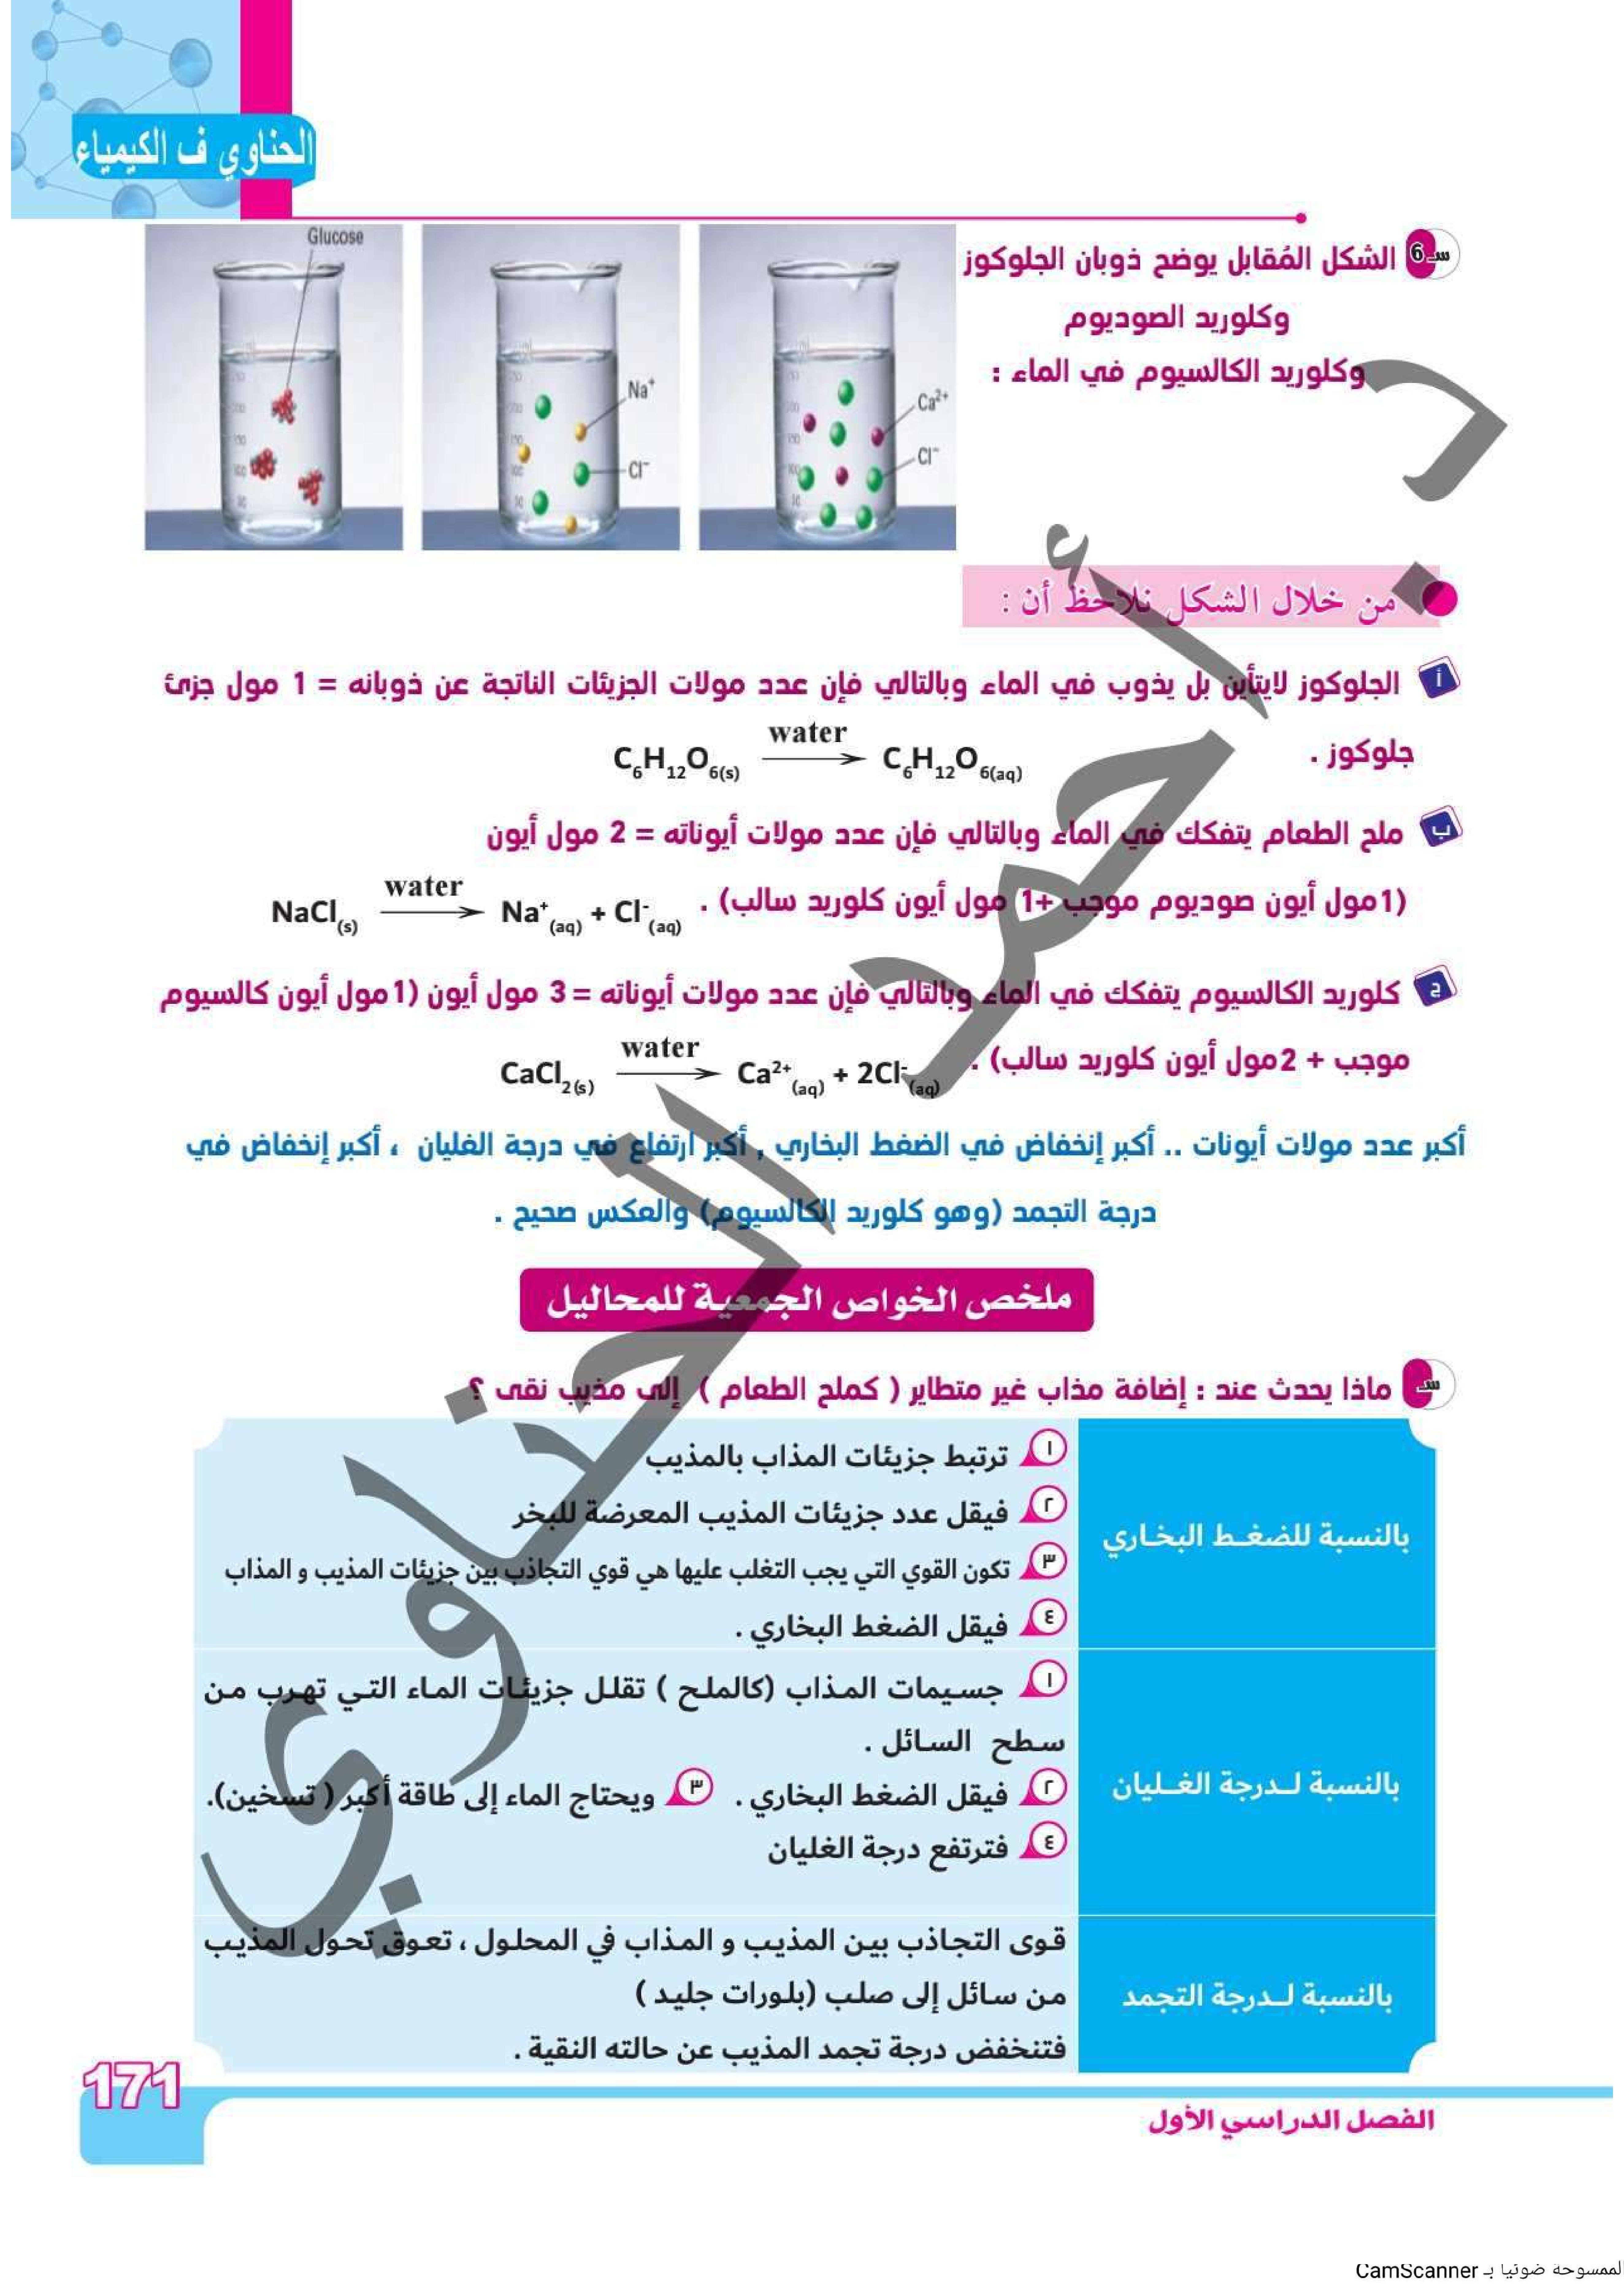 الحناوي ف الكيمياء
سـ6 الشكل المُقابل يوضح ذوبان الجلوكوز
وكلوريد الصوديوم
وكلوريد الكالسيوم في الماء :
Glucose
Na⁺
Cl⁻
Ca²⁺
Cl⁻
من خلال الشكل نلاحظ أن :
أ الجلوكوز لايتأين بل يذوب في الماء وبالتالي فإن عدد مولات الجزيئات الناتجة عن ذوبانه = 1 مول جزئ
جلوكوز .
C₆H₁₂O₆(s) water → C₆H₁₂O₆(aq)
ب ملح الطعام يتفكك في الماء وبالتالي فإن عدد مولات أيوناته = 2 مول أيون
(1مول أيون صوديوم موجب +1 مول أيون كلوريد سالب) .
NaCl(s) water → Na⁺(aq) + Cl⁻(aq)
ج كلوريد الكالسيوم يتفكك في الماء وبالتالي فإن عدد مولات أيوناته = 3 مول أيون (1مول أيون كالسيوم
موجب + 2مول أيون كلوريد سالب) .
CaCl₂(s) water → Ca²⁺(aq) + 2Cl⁻(aq)
أكبر عدد مولات أيونات .. أكبر إنخفاض في الضغط البخاري , أكبر ارتفاع في درجة الغليان ، أكبر إنخفاض في
درجة التجمد (وهو كلوريد الكالسيوم) والعكس صحيح .
ملخص الخواص الجمعية للمحاليل
سـ ماذا يحدث عند : إضافة مذاب غير متطاير ( كملح الطعام ) إلى مذيب نقى ؟
بالنسبة للضغط البخاري
١ ترتبط جزيئات المذاب بالمذيب
٢ فيقل عدد جزيئات المذيب المعرضة للبخر
٣ تكون القوي التي يجب التغلب عليها هي قوي التجاذب بين جزيئات المذيب و المذاب
٤ فيقل الضغط البخاري .
بالنسبة لـدرجة الغـليان
١ جسيمات المذاب (كالملح ) تقلل جزيئات الماء التي تهرب من
سطح السائل .
٢ فيقل الضغط البخاري . ٣ ويحتاج الماء إلى طاقة أكبر ( تسخين).
٤ فترتفع درجة الغليان
بالنسبة لـدرجة التجمد
قوى التجاذب بين المذيب و المذاب في المحلول ، تعوق تحول المذيب
من سائل إلى صلب (بلورات جليد )
فتنخفض درجة تجمد المذيب عن حالته النقية .
أ. أحمد الحناوي
171
الفصل الدراسي الأول
لممسوحة ضوئيا بـ CamScanner